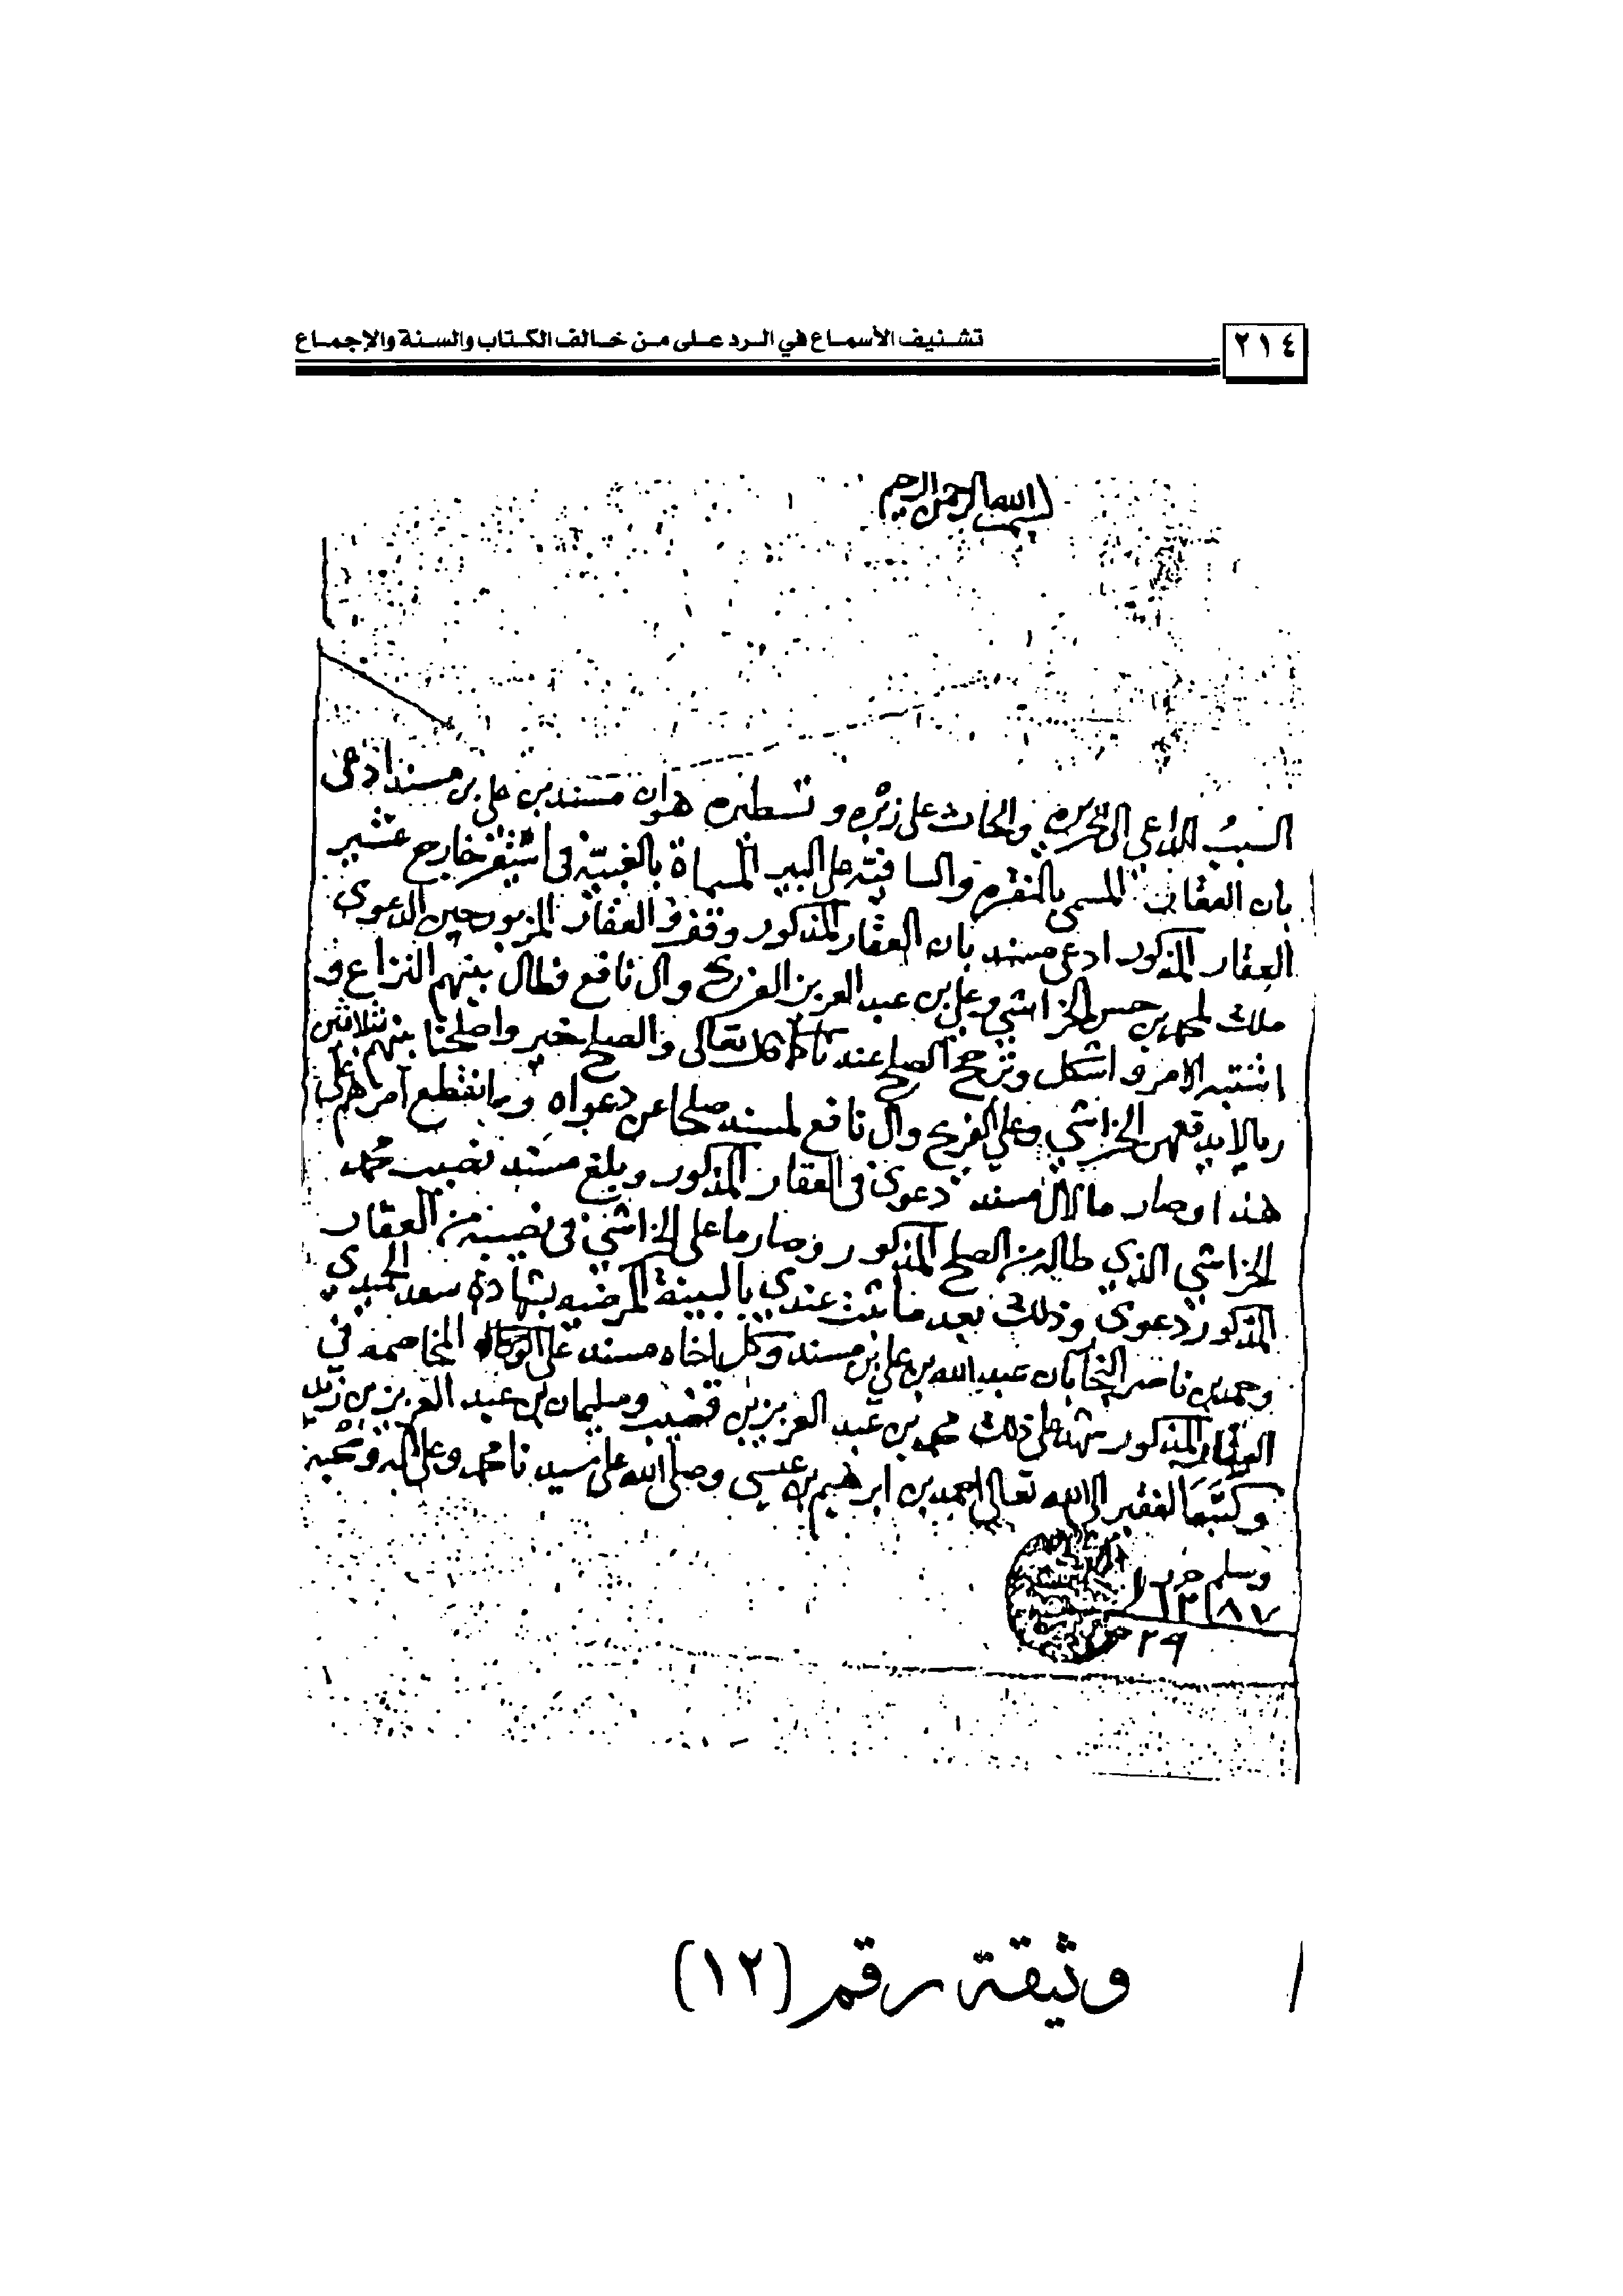 ٢١٤
تشنيف الأسماع في الرد على من خالف الكتاب والسنة والإجماع
بسم الله الرحمن الرحيم
السبب الداعي الى تحريره والحاث على زبره وتسطيره هو ان مسند بن علي بن مسند ادعى
بان العقار المسمى بالنقرة والساقية على البير المسماة بالغبيّة في اشيقر خارج عشير
العقار المذكور ادعى مسند بان العقار المذكور وقف والعقار المزبور حين الدعوى
ملك لمحمد بن حسن الخراشي وعلي بن عبد العزيز الفريح وال نافع فطال بينهم النزاع و
اشتبه الامر واشكل وترجح الصلح عند قال تعالى والصلح خير واصلحنا بينهم بثلاثين
ريالا يدفعهن الخراشي وعلي الفريح وال نافع لمسند صلحا عن دعواه وبها انقطع امرهم على
هذا وصار ما لال مسند دعوى في العقار المذكور وبلغ مسند نصيب محمد
الخراشي الذي طاله من الصلح المذكور وصار ما على الخراشي في نصيبه من العقار
المذكور دعوى وذلك بعد ما ثبت عندي بالبينة المرضيه بشهادة سعد الحميدي
وحمد بن ناصر النجا بان عبد الله بن علي بن مسند وكل اخاه مسند على المخاصمه في
العقار المذكور شهد على ذلك محمد بن عبد العزيز بن قضيب وسليمان بن عبد العزيز بن زيد
وكتبه الفقير الى الله تعالى احمد بن ابرهيم بن عيسى وصلى الله على سيدنا محمد وعلى اله وصحبه
وسلم حرر
١٢٨٧
٢٩
وثيقة رقم (١٢)